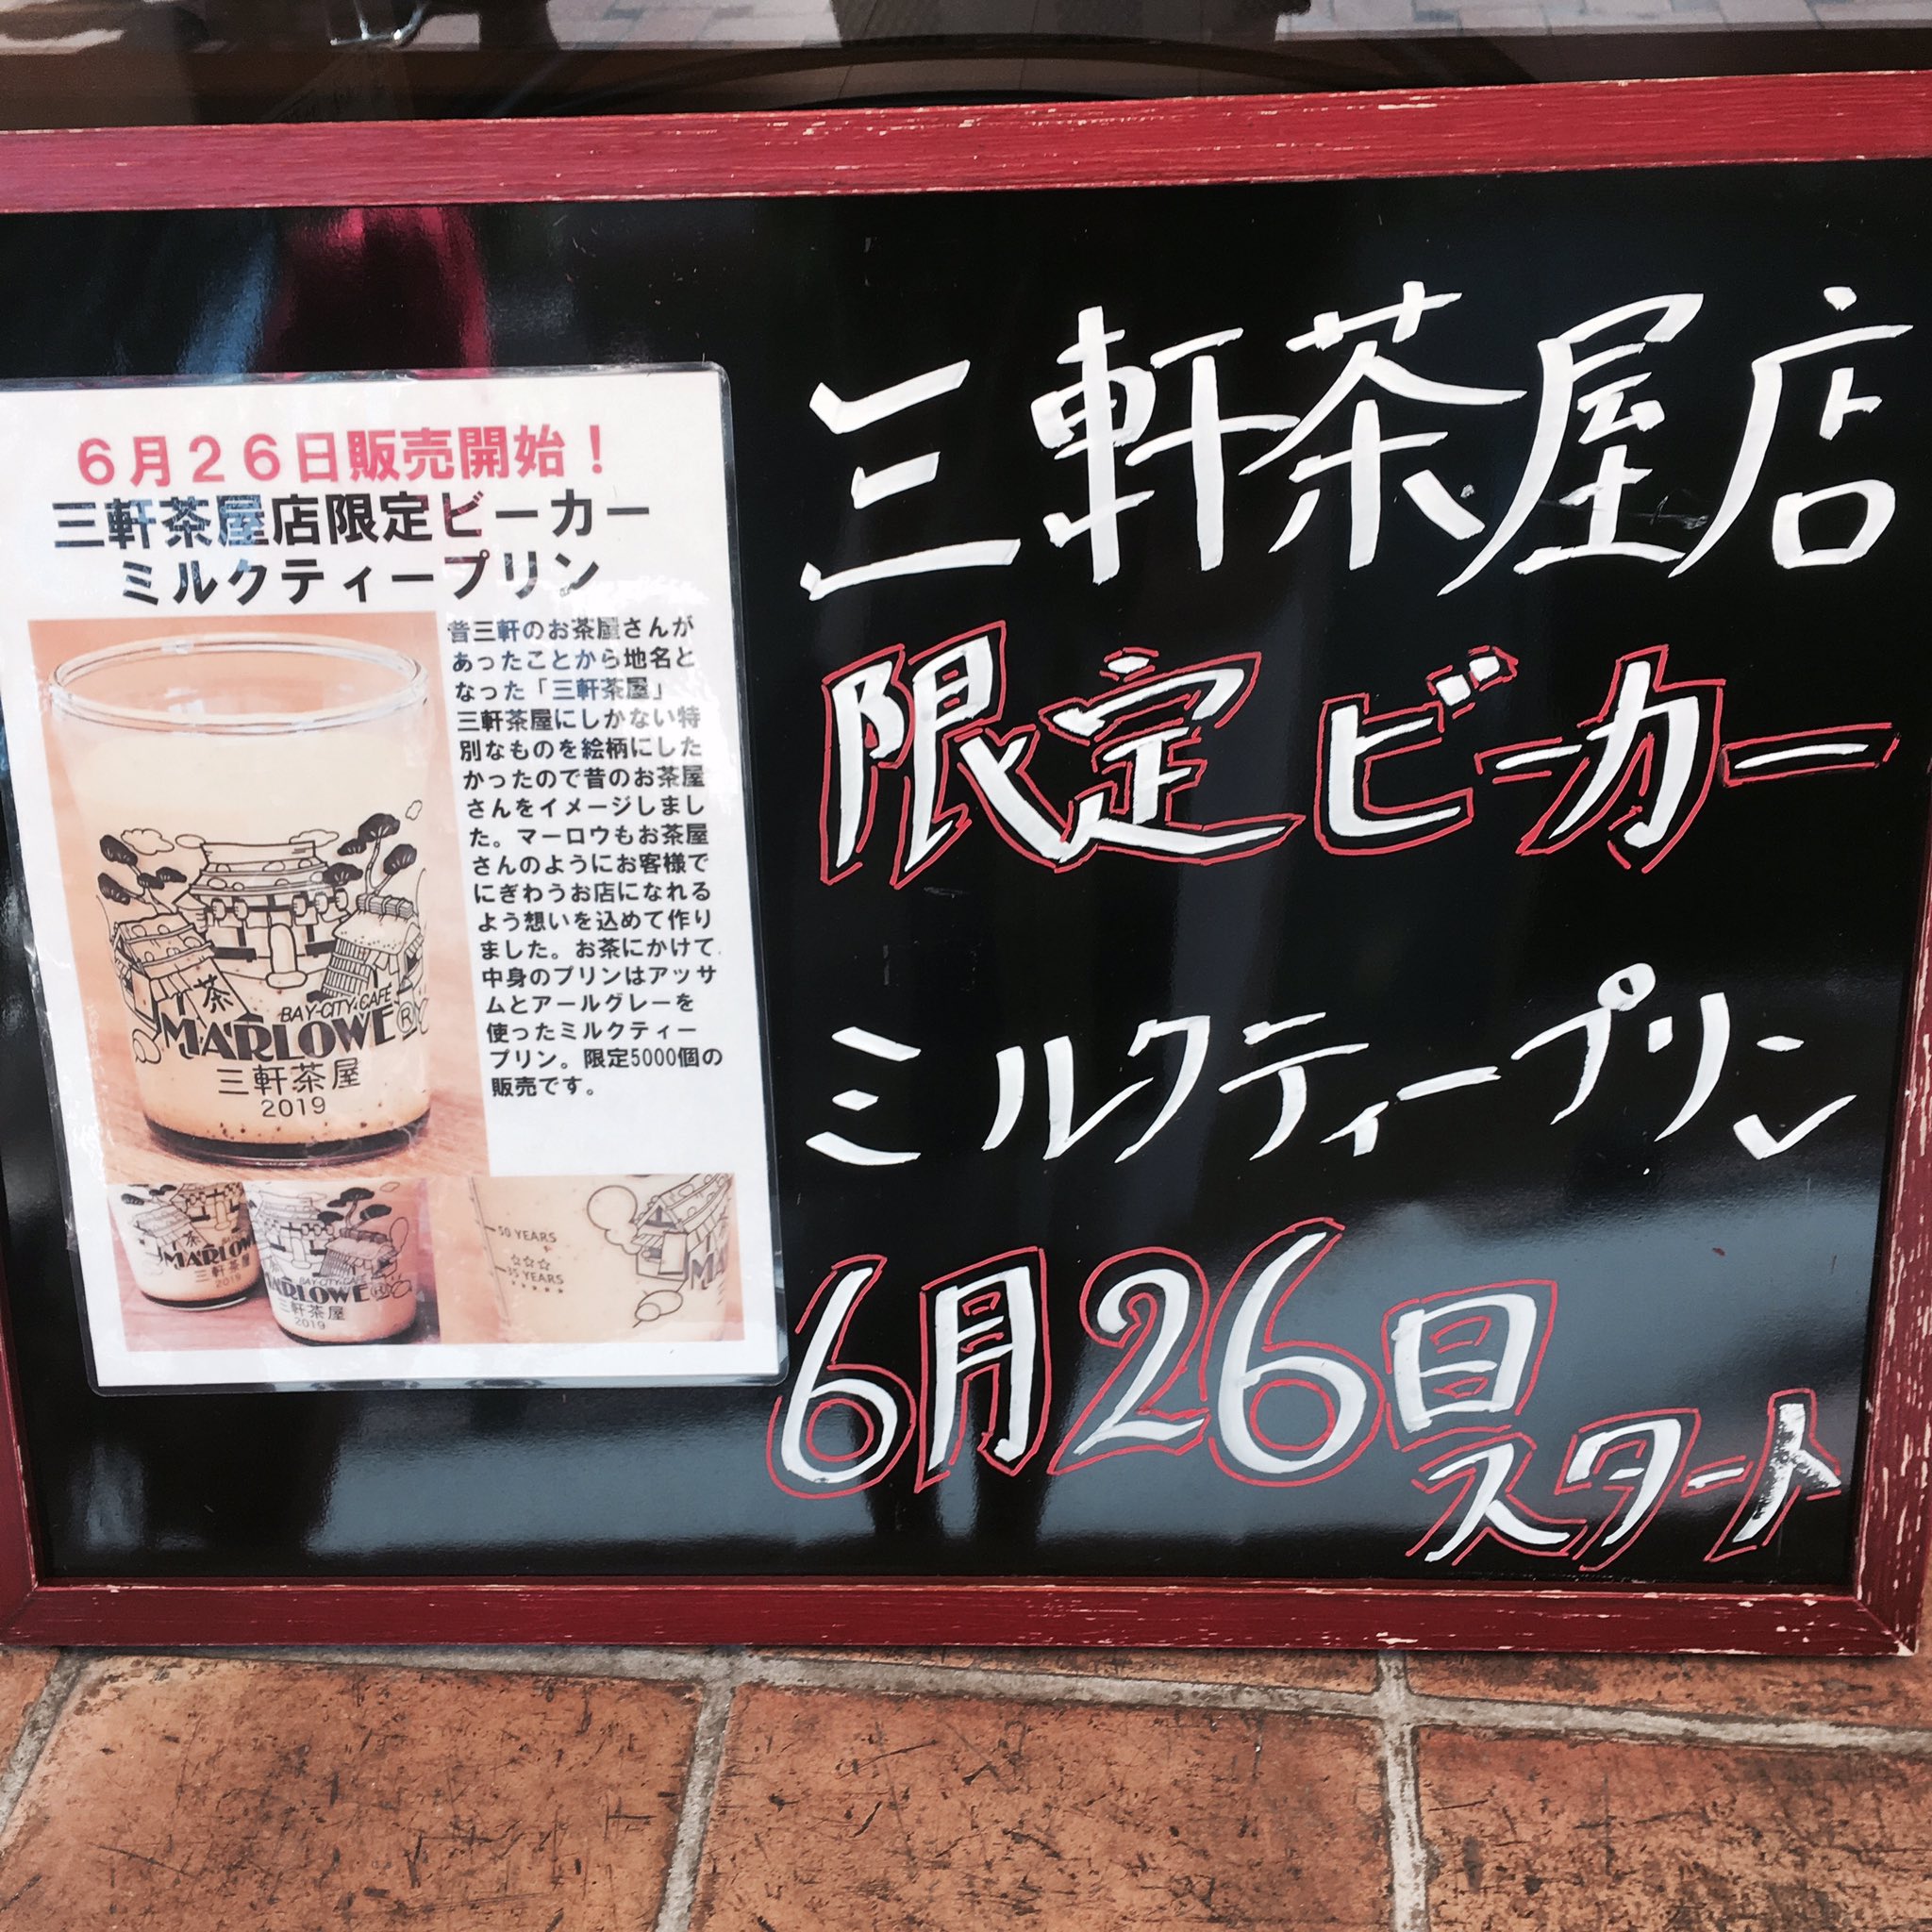 6月26日販売開始！
三軒茶屋店限定ビーカー
ミルクティープリン
昔三軒のお茶屋さんが
あったことから地名と
なった「三軒茶屋」
三軒茶屋にしかない特
別なものを絵柄にした
かったので昔のお茶屋
さんをイメージしまし
た。マーロウもお茶屋
さんのようにお客様で
にぎわうお店になれる
よう想いを込めて作り
ました。お茶にかけて
中身のプリンはアッサ
ムとアールグレーを
使ったミルクティー
プリン。限定5000個の
販売です。
茶
BAY-CITY CAFE
MARLOWE®
三軒茶屋
2019
茶
MARLOW
三軒茶屋
2019
BAY-CITY CAFE
MARLOWE®
三軒茶屋
2019
50 YEARS
35 YEARS
MA
三軒茶屋店
限定ビーカー
ミルクティープリン
6月26日
スタート